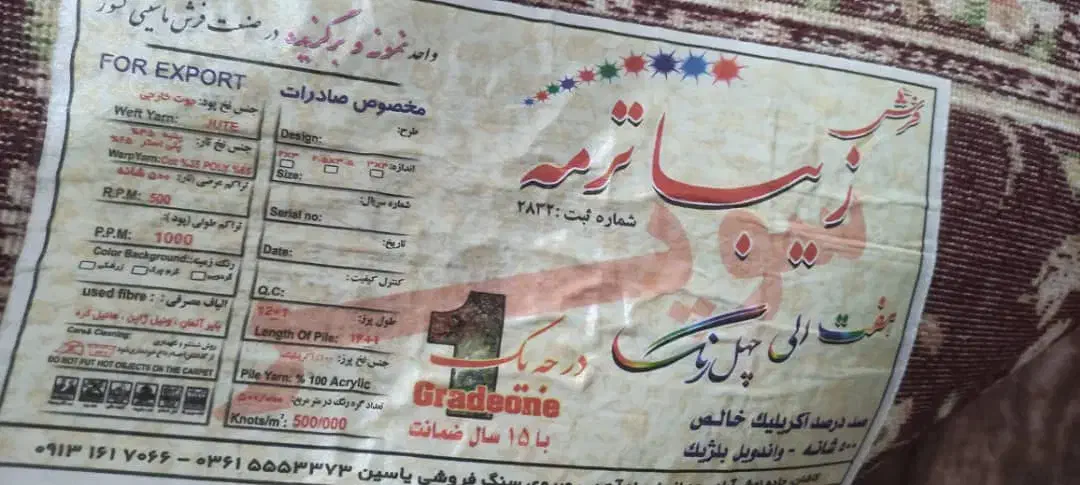 واحد نمونه و برگزیده در صنعت فرش ماشینی کشور
فرش
زیبا ترمه
شماره ثبت : ۲۸۳۲
هفت الی چهل رنگ
صد درصد آکریلیک خالص
۵۰۰ شانه - واندویل بلژیک
1
درجه یک
Gradeone
با ۱۵ سال ضمانت
FOR EXPORT
مخصوص صادرات
طرح:
Design:
اندازه:
Size:
شماره سریال:
Serial no:
تاریخ:
Date:
کنترل کیفیت:
Q.C:
طول پرز:
12+1
Length Of Pile:
جنس نخ پرز:
Pile Yarn: % 100 Acrylic
تعداد گره رنگ در متر مربع:
Knots/m²: 500/000
جنس نخ پود: جوت خارجی
Weft Yarn: JUTE
جنس نخ تار:
WarpYarn: Cot %35 POLY %65
تراکم عرضی (تار): ۵۰۰ شانه
R.P.M: 500
تراکم طولی (پود):
P.P.M: 1000
رنگ زمینه:
Color Background:
الیاف مصرفی:
used fibre:
بایر آلمان ، ونیل ژاپن ، هانیل کره
روش شستشو و نگهداری
Care& Cleaning:
DO NOT PUT HOT OBJECTS ON THE CARPET
سنگ فروشی یاسین ۰۳۶۱ ۵۵۵۳۳۷۳ - ۰۹۱۳ ۱۶۱ ۷۰۶۶